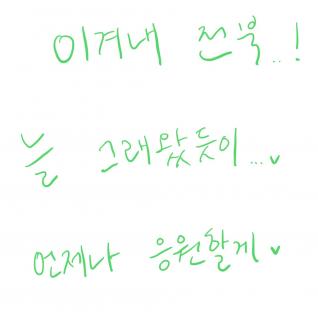 이겨내 전북..!
늘 그래왔듯이...♥
언제나 응원할게 ♥